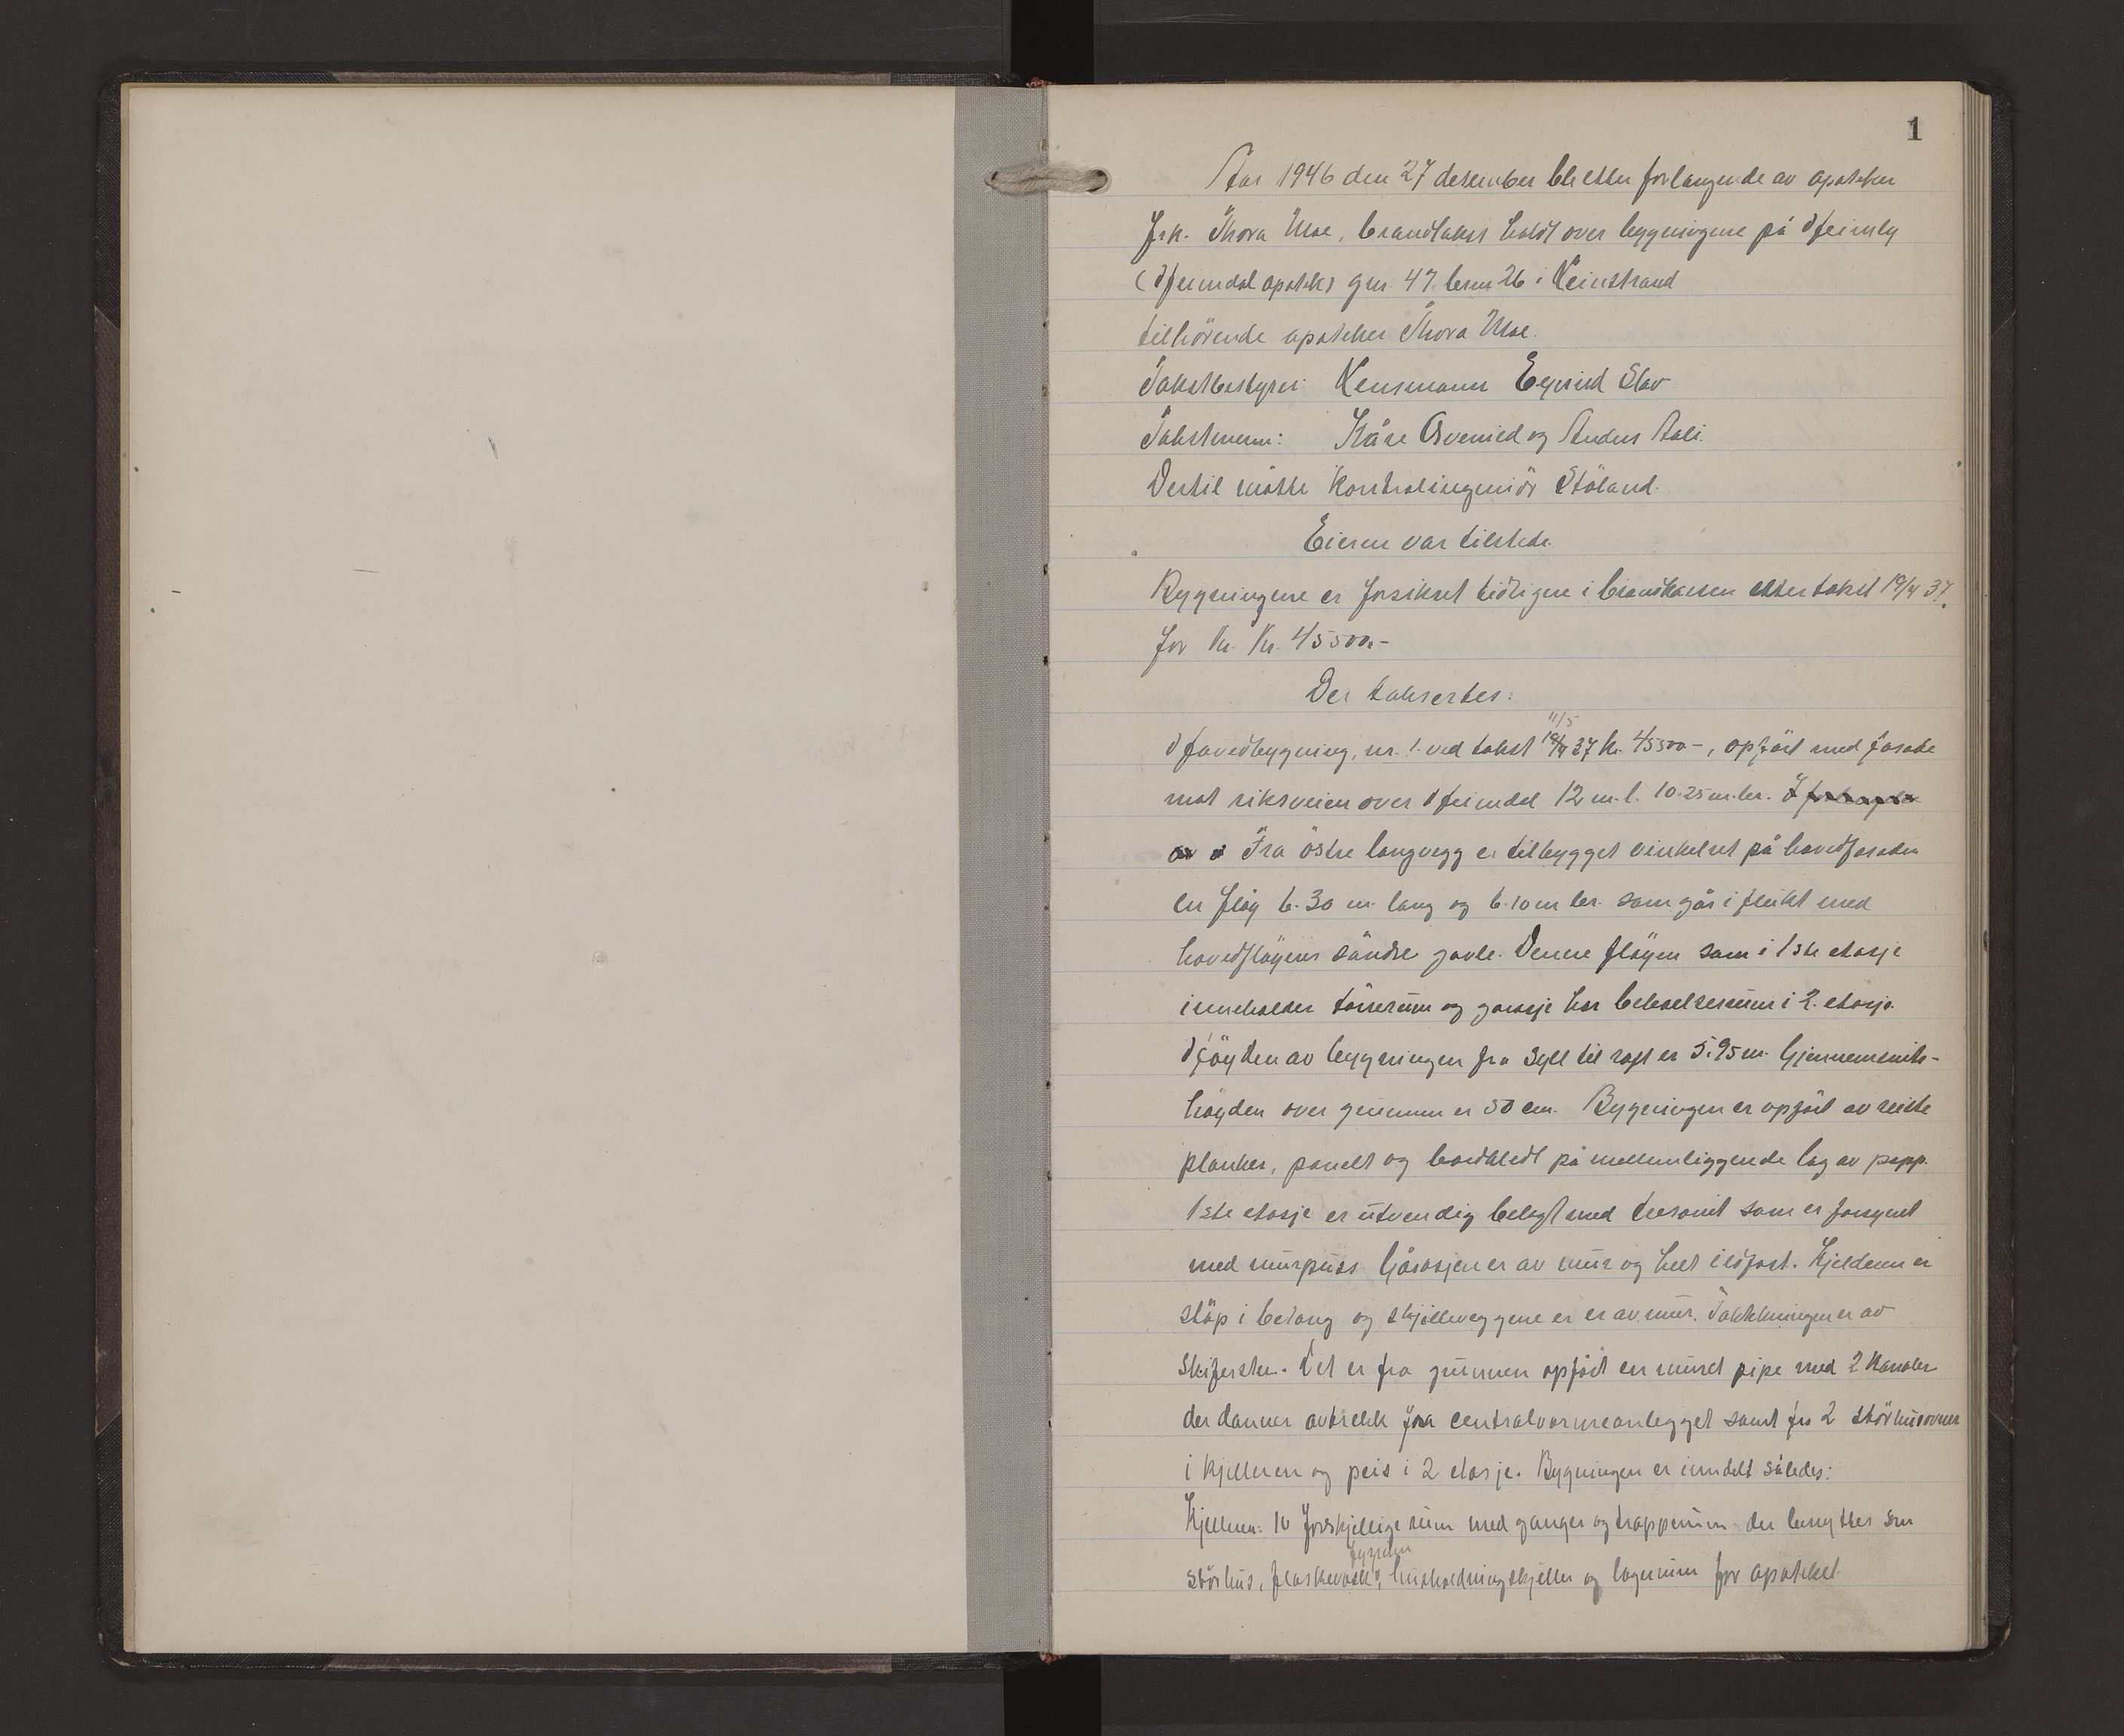 1
Aar 1946 den 27 desember ble etter forlangende av apoteker
frk. Thora Moe, brandtakst holdt over bygningene på Heimly
(Heimdal apotek) gnr. 47 bnr 26 i Leinstrand
tilhörende apoteker Thora Moe.
Takstbestyrer: Lensmann Eyvind
Takstmenn: Kåre og Anders Aali.
Dertil mötte Kontrolingeniör Stöland.
Eieren var tilstede.
Bygningene er forsikret tidligere i brandkassen etter takst 19/4 37.
for kr. Kr. 45500.-
Der taksertes:
11/5
Hovedbygning, nr. 1. ved takst 19/4 37 kr. 45500-, opfört med fasade
mot riksveien over Heimdal 12 m.l. 10.25 m.br.
Fra östre langvegg er tilbygget vinkelret på hovedfasaden
en flöy 6.30 m. lang og 6.10 m br. som går i flukt med
hovedflöyens söndre gavle. Denne flöyen som i 1ste etasje
inneholder törrerum og garasje har beboelsesrum i 2. etasje.
Höyden av bygningen fra syll til raft er 5.95 m. Gjennemsnits-
höyden over grunnen er 50 cm. Bygningen er opfört av reiste
planker, panelt og bordkledt på mellemliggende lag av papp.
1ste etasje er utvendig belagt med tresonit som er forsynet
med murpuss Garasjen er av mur og helt ildfast. Kjelderen er
stöp i betong og skilleveggene er er av mur. Taktekningen er av
skifersten. Det er fra grunnen opfört en muret pipe med 2 kanaler
der danner avtrekk fra centralvarmeanlegget samt fra 2 störhusovner
i kjelleren og peis i 2 etasje. Bygningen er inndelt således:
Kjelleren: 10 forskjellige rum med ganger og trapperum der benyttes som
fyrrum
störhus, flaskevask, husholdningskjeller og lagerrum for apoteket